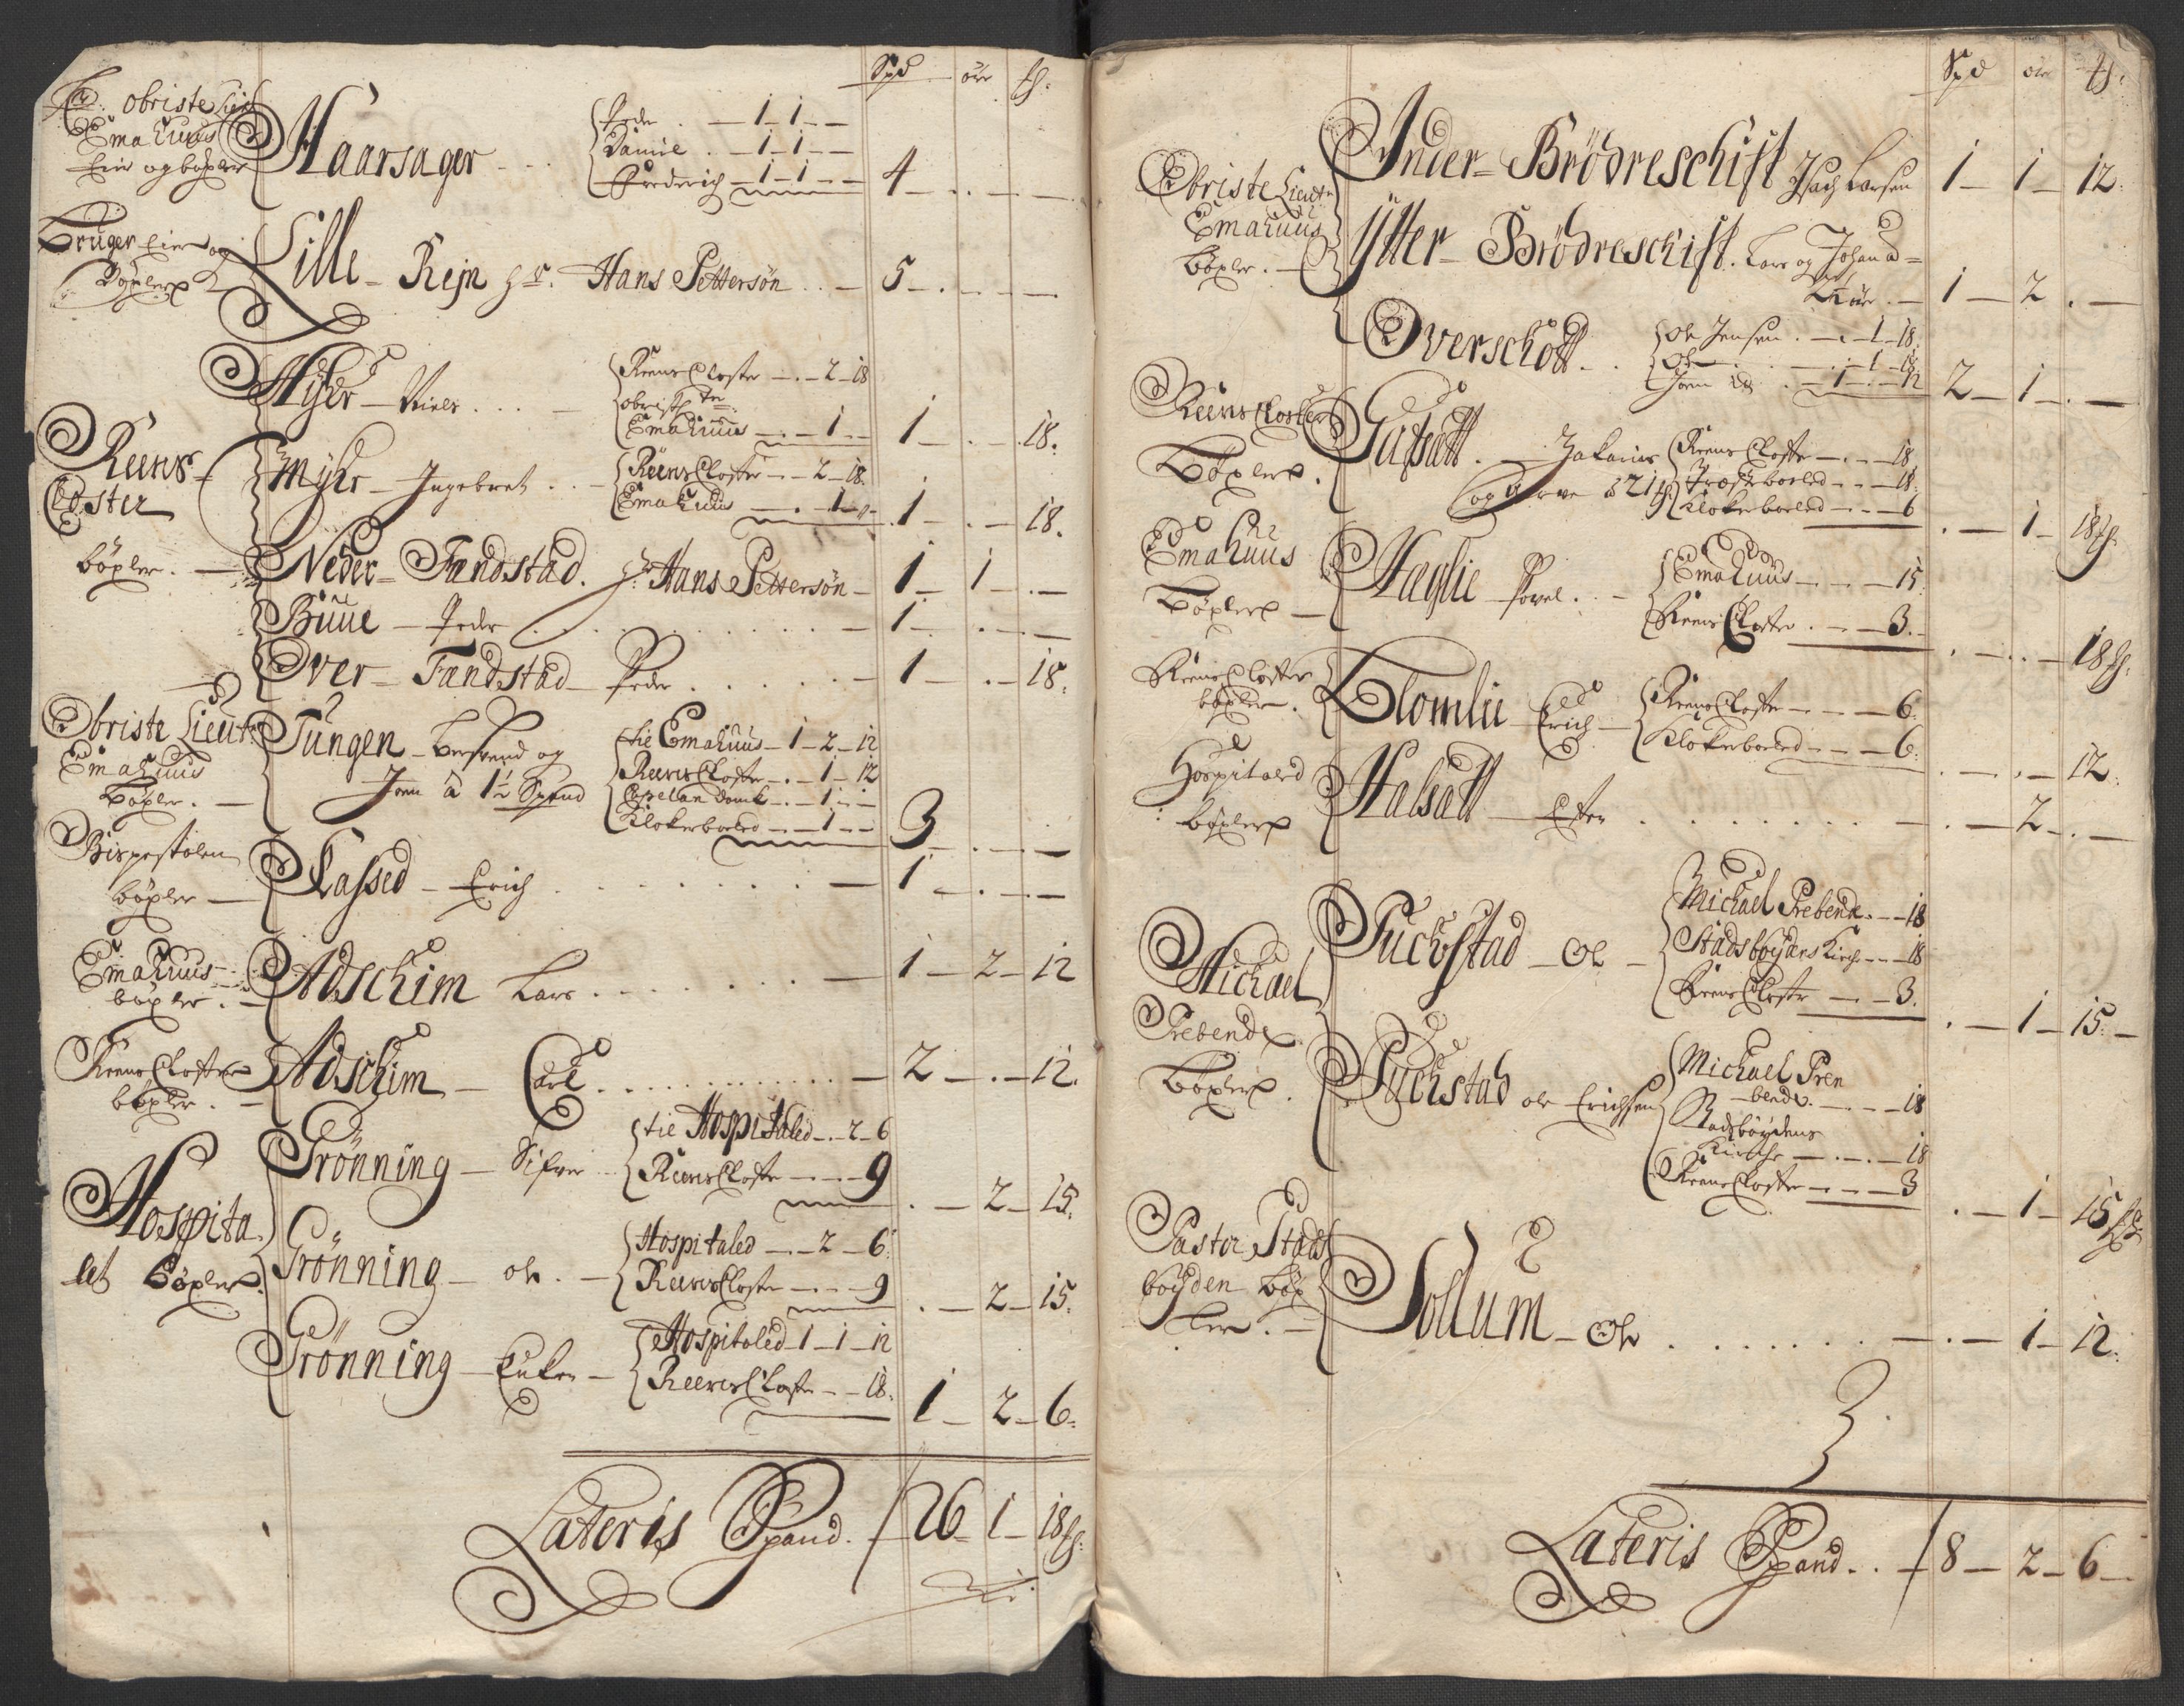 Spd öre
obriste
Emahuus
Eier og böxler
Haarsager
Peder 1 1
Daniel 1 1
Frederich 1 1
4
Krüger Eier og
Böxler
Lille Rejn Hr. Hans Pettersøn 5
Myhr Niels
Reens Closter 2 18
obriste
Emahuus 1
1 18.
Reens
Closter
böxler.
Myhr Ingebret
Reens Closter 2 18
Emahuus 1
1 18.
Neder Fandstad. Hr. Hans Pettersøn 1 1
Buue Peder 1
Over Fandstad Peder 1 18.
Obriste Lieut:
Emahuus
böxler.
Tungen
og
Joen à 1½ Spand
til Emahuus 1 2 12
Reens Closter 1 12
Capelan 1
Klokerboeled 1
3
Bispestolen
böxler
Lassed Erich 1
Emahuus
böxler.
Adschim Lars 1 2 12
Reens Closter
böxler.
Adschim Carl 2 12.
Hospita
let böxler.
Grönning Sifver
til Hospitaled 2 6
Reens Closter 9
2 15.
Grönning ole
Hospitaled 2 6
Reens Closter 9
2 15.
Grönning
Hospitaled 1 1 12
Reens Closter 18.
1 2 6.
Lateris Spand. 26 1 18
Spd öre
Obriste Lieut
Emahuus
böxler.
Inder Brödreschift Isach Larsen 1 1 12.
Ytter Brödreschift. Lars og Johan à
1 2
Overschott
Ole Jensen 1 18.
Ole 1 18
Joen 1 12
2 1
Reens Closter
Böxler.
Gatsett. Zakarias
Reens Closter 18
Præsteboeled 18
Klokerboeled 6
1 18
Emahuus
böxler
Haglie Povel
Emahuus 15
Reens Closter 3.
18
Reens Closter
böxler.
Blomlie Erich
Reens Closter 6
Klokerboeled 6
12.
Hospitaled
böxler
Halsett 2
Michael
Prebende
böxler.
Puckstad Ole
Michael Prebende 18
Stadsboydens Kirche 18
Reens Closter 3.
1 15.
Puckstad ole Erichsen
Michael Pren
bende 18
Stadsböydens
Kirche 18
Reens Closter 3
1 15
Pastor Stads
boyden böx
ler.
Sollum Ole 1 12.
Lateris Spand 8 2 6